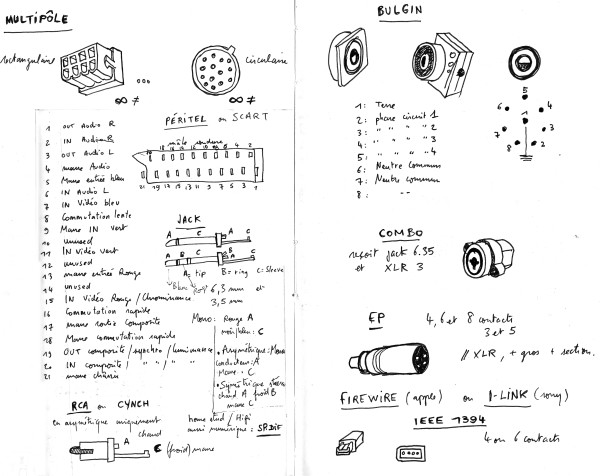 MULTIPÔLE
rectangulaire
...
circulaire
∞ ≠
∞ ≠
PÉRITEL ou SCART
1 OUT Audio R
2 IN Audio R
3 OUT Audio L
4 masse Audio
5 Masse entrée bleu
6 IN Audio L
7 IN Vidéo bleu
8 Commutation lente
9 Masse IN vert
10 unused
11 IN Vidéo vert
12 unused
13 masse entrée Rouge
14 unused
15 IN Vidéo Rouge / Chrominance
16 Commutation rapide
17 masse sortie composite
18 Masse commutation rapide
19 OUT composite / synchro / luminance
20 IN composite / " / "
21 masse châssis
mâle
20 18 16 14 12 10 8 6 4 2
21 19 17 15 13 11 9 7 5 3 1
JACK
A B C
A C
A B C
A: tip B = ring C: sleeve
6,3 mm et
3,5 mm
Mono: Rouge A
noir/bleu: C
• Asymétrique: Mono
conducteur: A
Masse: C
• Symétrique stereo
chaud A froid B
masse C
RCA ou CYNCH
en asymétrique uniquement
chaud
A
C (froid) masse
home stud / Hifi
aussi numérique: SPDIF
BULGIN
1: Terre
2: phase circuit 1
3: " " " 2
4: " " " 3
5: " " " 4
6: Neutre commun
7: Neutre commun
8: --
5
6 4
1
7 3
8 2
COMBO
reçoit jack 6.35
et XLR 3
EP
4, 6 et 8 contacts
3 et 5
// XLR, + gros + section.
FIREWIRE (apple) ou I-LINK (sony)
IEEE 1394
4 ou 6 contacts